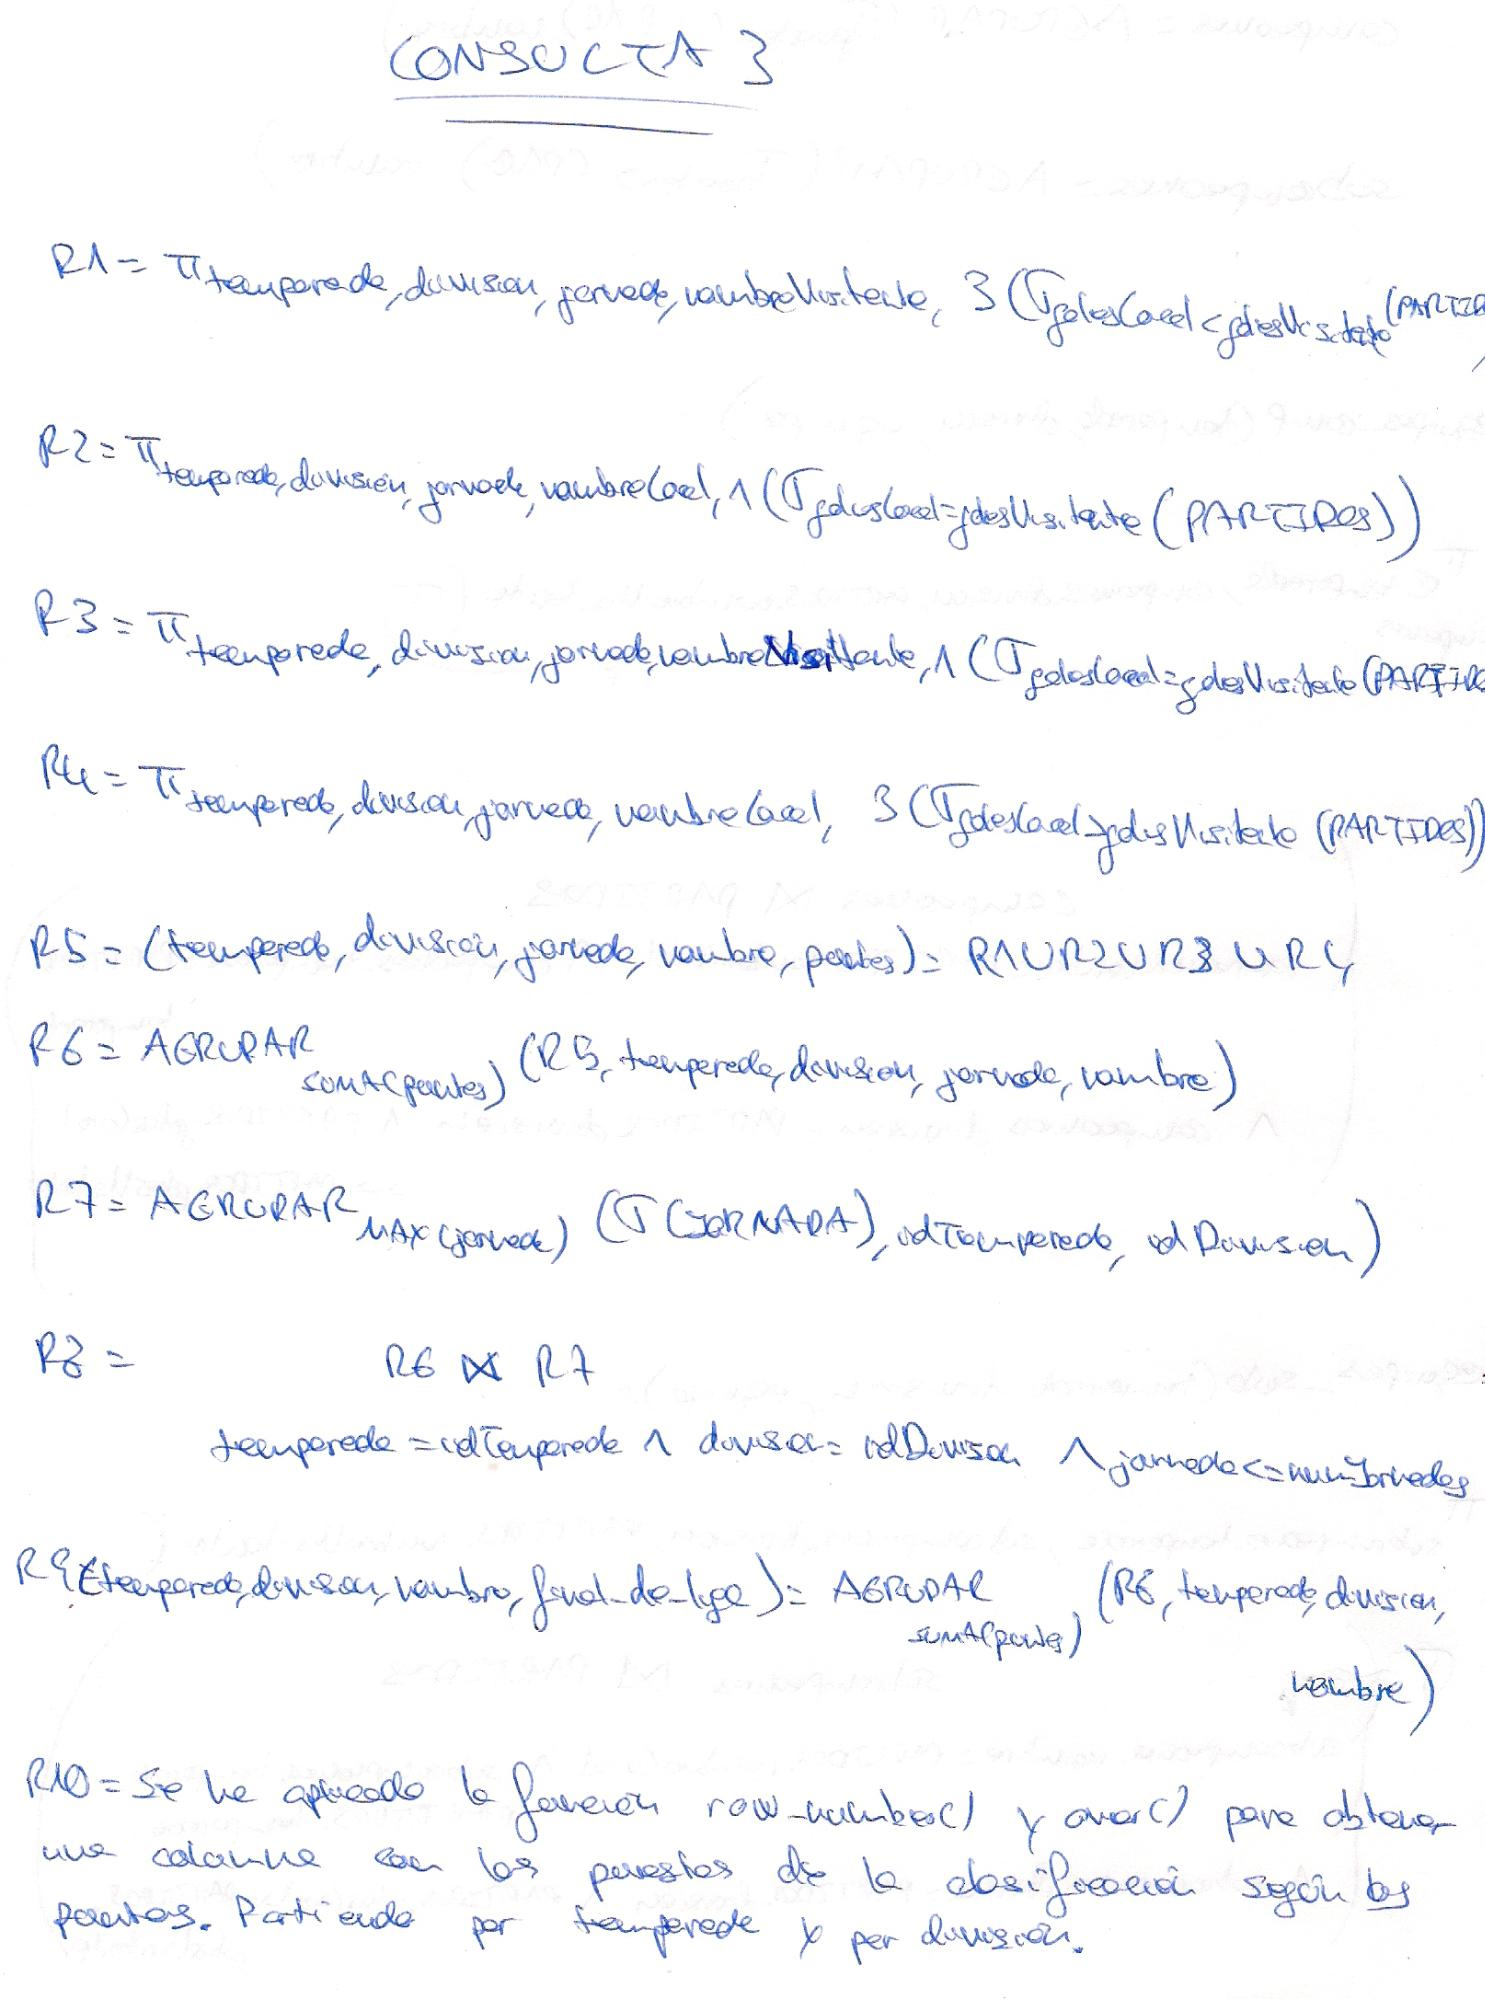 CONSULTA 3
R1 = π temporada, division, jornada, nombreVisitante, 3 (σ golesLocal < golesVisitante (PARTID
R2 = π temporada, división, jornada, nombreLocal, 1 (σ golesLocal = golesVisitante (PARTIDOS))
R3 = π temporada, division, jornada, nombreVisitante, 1 (σ golesLocal = golesVisitante (PARTIDO
R4 = π temporada, division, jornada, nombreLocal, 3 (σ golesLocal > golesVisitante (PARTIDOS))
R5 = (temporada, división, jornada, nombre, puntos) = R1 U R2 U R3 U R4
R6 = AGRUPAR SUMA(puntos) (R5, temporada, division, jornada, nombre)
R7 = AGRUPAR MAX(jornada) (σ (JORNADA), idTemporada, idDivision)
R8 = R6 ⋈ R7
temporada = idTemporada ∧ division = idDivision ∧ jornada <= numJornadas
R9 (temporada, division, nombre, final_de_liga) = AGRUPAR SUMA(puntos) (R8, temporada, division,
nombre)
R10 = Se ha aplicado la función row_number() y over() para obtener
una columna con los puestos de la clasificación según los
puntos. Partiendo por temporada y por división.